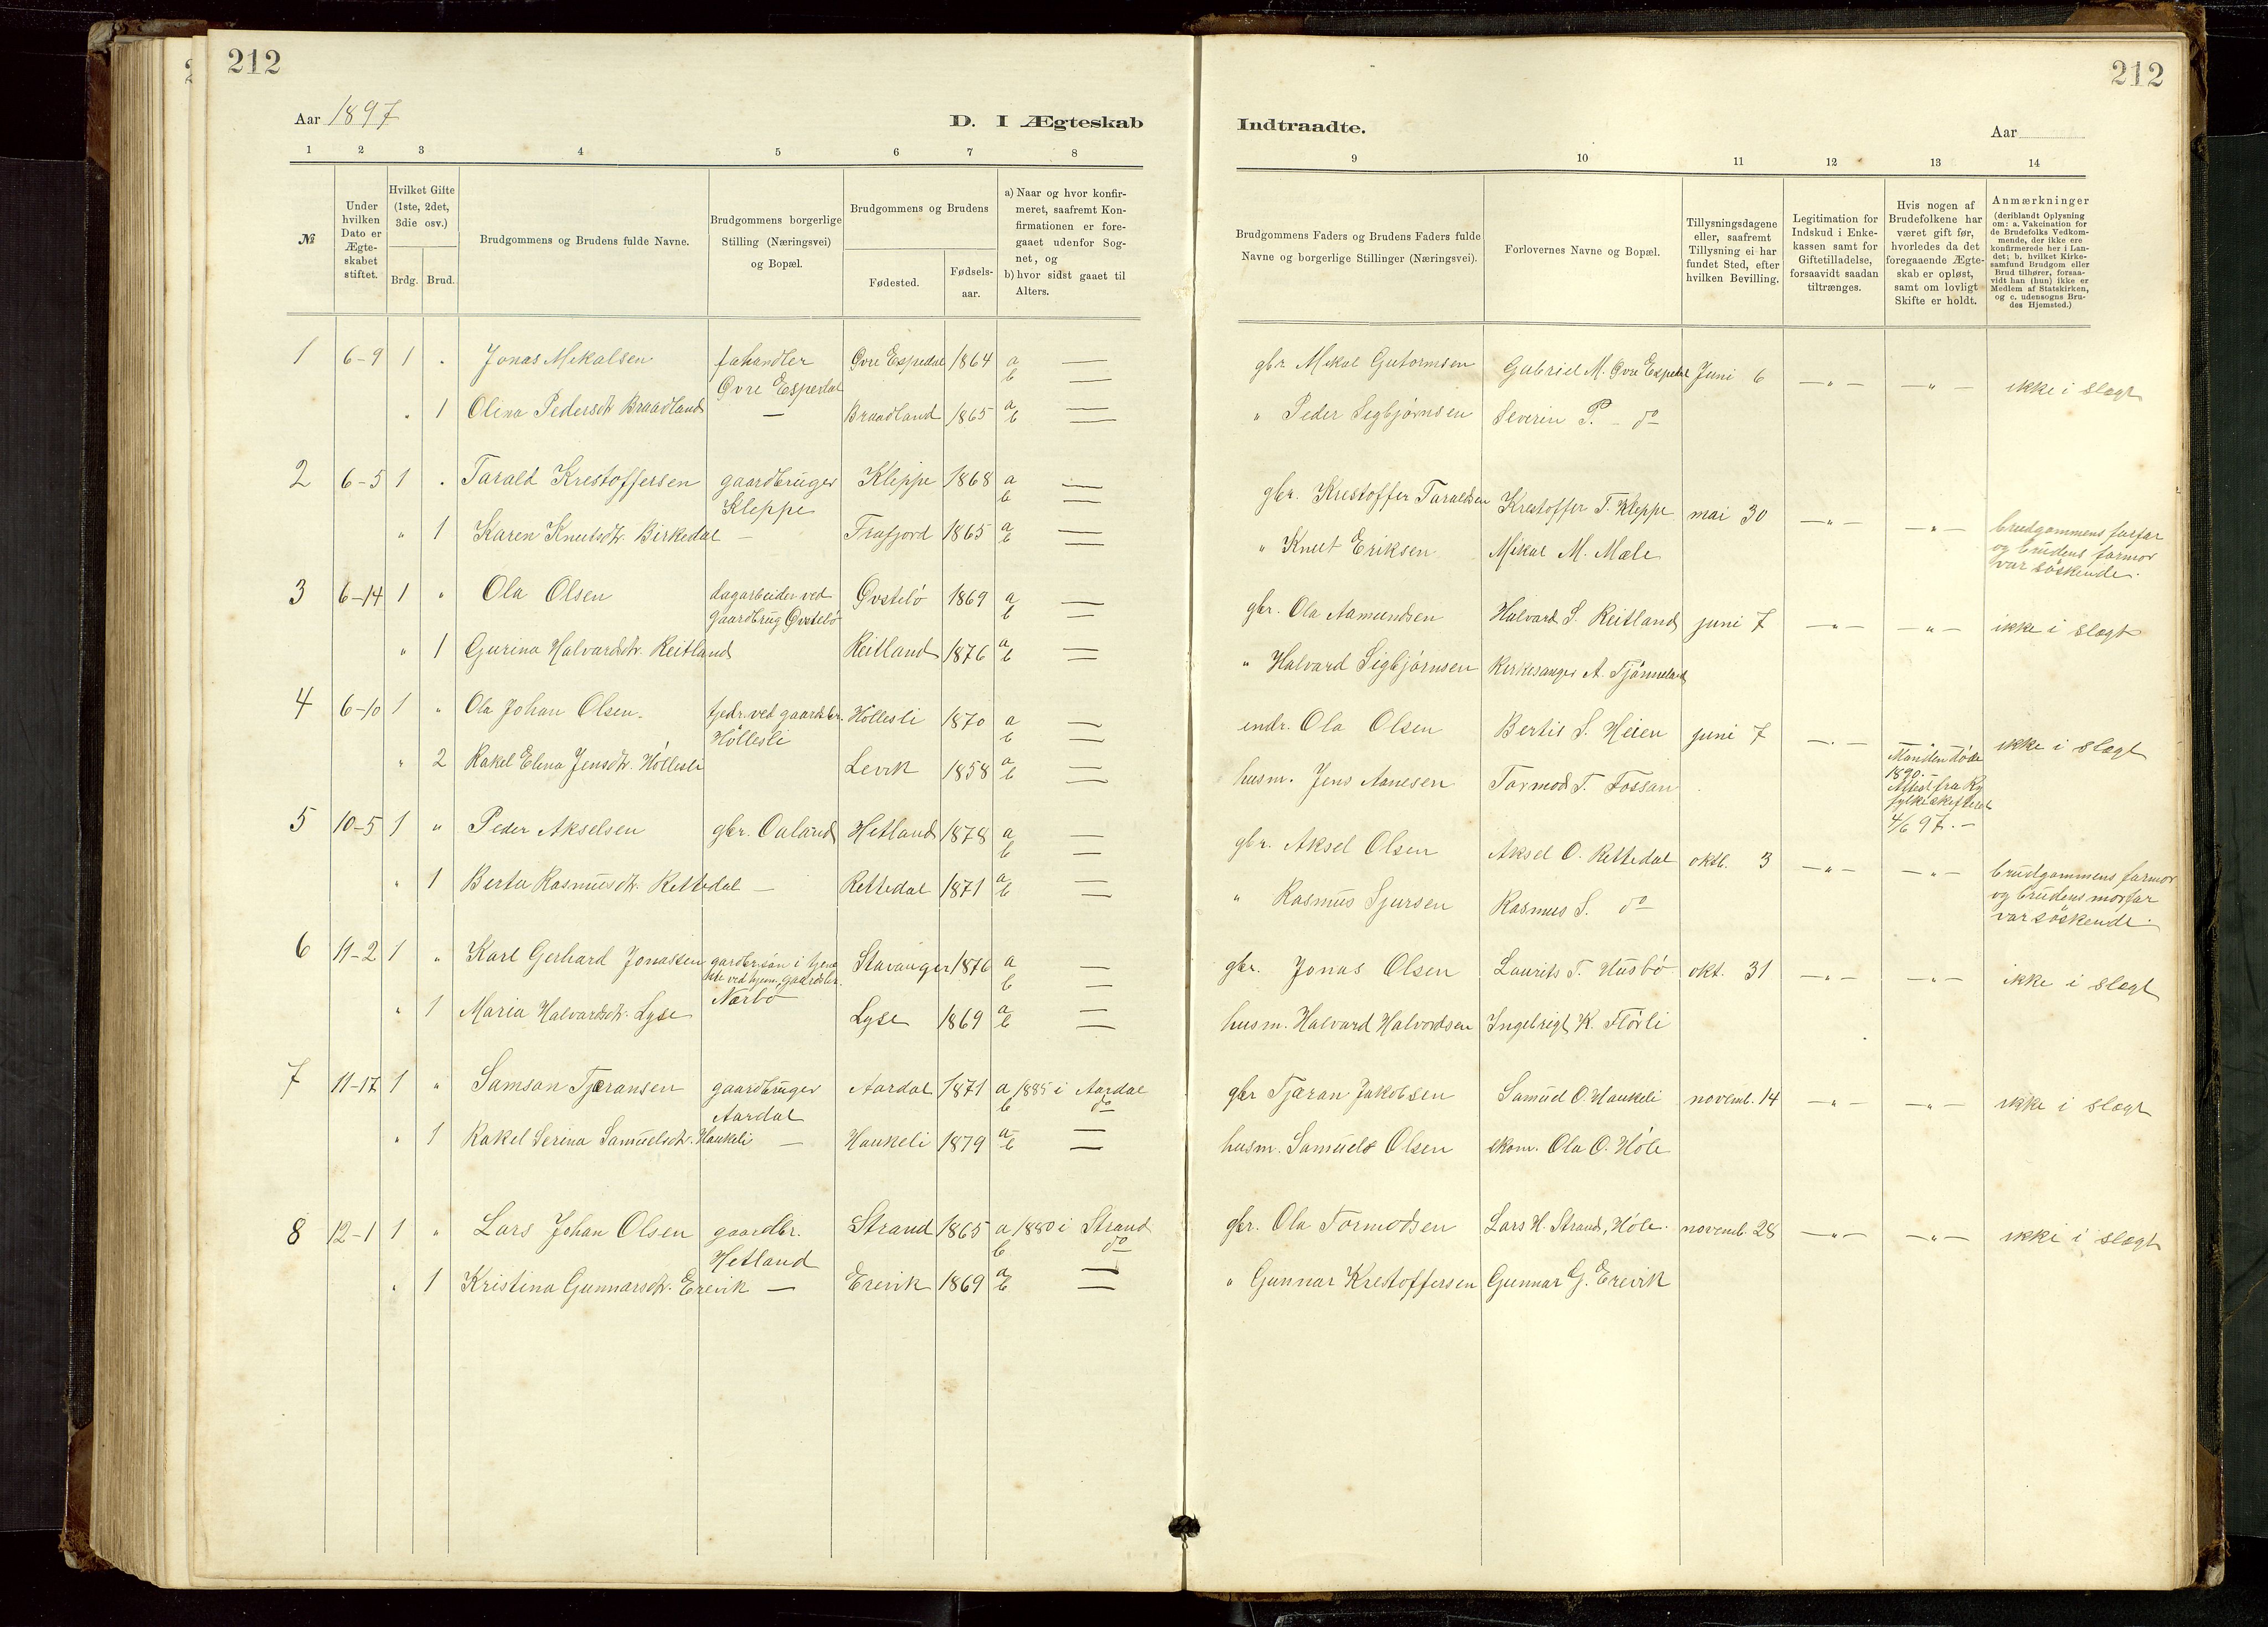 212
Aar 1897
D. I Ægteskab
1 2 3 4 5 6 7 8
№
Under hvilken Dato er Ægte-skabet stiftet.
Hvilket Gifte (1ste, 2det, 3die osv.)
Brdg. Brud.
Brudgommens og Brudens fulde Navne.
Brudgommens borgerlige Stilling (Næringsvei) og Bopæl.
Brudgommens og Brudens
Fødested.
Fødsels-aar.
a) Naar og hvor konfir-meret, saafremt Kon-firmationen er fore-gaaet udenfor Sog-net, og
b) hvor sidst gaaet til Alters.
1 6-9 1 " Jonas Mikalsen fæhandler Øvre Espedal 1864 a —
Øvre Espedal b —
" 1 Olina Pedersdtr. Braadland — Braadland 1865 a b —
2 6-5 1 " Tarald Krestoffersen gaardbruger Kleppe 1868 a —
Kleppe b —
" 1 Karen Knutsdtr. Birkedal — Frafjord 1865 a b —
3 6-14 1 " Ola Olsen dagarbeider ved Øvstebö 1869 a —
gaardbrug Øvstebö b —
" 1 Gurina Halvardsdtr. Reitland Reitland 1876 a b —
4 6-10 1 " Ola Johan Olsen. tjedr. ved gaardsbr. Höllesli 1870 a —
Höllesli b —
" 2 Rakel Elena Jensdtr. Höllesli Levik 1858 a b —
5 10-5 1 " Peder Akselsen gbr. Oaland Hetland 1878 a —
b —
" 1 Berta Rasmusdtr. Rettedal — Rettedal 1871 a b —
6 11-2 1 " Karl Gerhard Jonassen gardbr.sön i tjene Stavanger 1876 a —
ste ved hjem. gaardsbr. b —
Nærbö
" 1 Maria Halvardsdtr. Lyse Lyse 1869 a b —
7 11-17 1 " Samson Tjæransen gaardbruger Aardal 1871 a 1885 i Aardal
Aardal b do
" 1 Rakel Serina Samuelsdtr. Haukeli — Haukeli 1879 a b —
8 12-1 1 " Lars Johan Olsen gaardbr. Strand 1865 a 1880 i Strand
Hetland b do
" 1 Kristina Gunnarsdtr. Erevik — Erevik 1869 a b —
212
Indtraadte.
Aar
9 10 11 12 13 14
Brudgommens Faders og Brudens Faders fulde Navne og borgerlige Stillinger (Næringsvei).
Forlovernes Navne og Bopæl.
Tillysningsdagene eller, saafremt Tillysning ei har fundet Sted, efter hvilken Bevilling.
Legitimation for Indskud i Enke-kassen samt for Giftetilladelse, forsaavidt saadan tiltrænges.
Hvis nogen af Brudefolkene har været gift før, hvorledes da det foregaaende Ægte-skab er opløst, samt om lovligt Skifte er holdt.
Anmærkninger (deriblandt Oplysning om: a. Vakcination for de Brudefolks Vedkom-mende, der ikke ere konfirmerede her i Lan-det; b. hvilket Kirke-samfund Brudgom eller Brud tilhører, forsaa-vidt han (hun) ikke er Medlem af Statskirken, og c. udensogns Bru-des Hjemsted.)
gbr. Mikal Gutormsen Gabriel M. Øvre Espedal Juni 6 —"— —"— ikke i slægt
" Peder Sigbjørnsen Severin P. — do
gbr. Krestoffer Taraldsen Krestoffer T. Kleppe mai 30 —"— —"— brudgommens farfar
og brudens farmor
var söskende.
" Knut Eriksen Mikal M. Mæle
gbr. Ola Aamundsen Halvard S. Reitland juni 7 —"— —"— ikke i slægt
" Halvard Sigbjørnsen Kirkesanger A. Tjönneland
endr. Ola Olsen Bertil S. Heien juni 7 —"— " ikke i slægt
Manden döde
1890.—
Attest fra Ry
fylke skifteret
4/6 97.—
husm. Jens Aanesen Tormod T. Fossan
gbr. Aksel Olsen Aksel O. Rettedal oktb. 3 —"— —"— brudgommens farmor
og brudens morfar
var söskende.
" Rasmus Sjursen Rasmus S. do
gbr. Jonas Olsen Laurits T. Husbö okt. 31 —"— —"— ikke i slægt
husm. Halvard Halvordsen Ingebrigt K. Flörli
gbr Tjæran Jakobsen Samuel O. Haukeli novemb. 14 —"— —"— ikke i slægt
husm. Samuel Olsen skom. Ola O. Höle
gbr. Ola Tormodsen Lars H. Strand, Höle. novemb. 28 —"— —"— ikke i slægt
" Gunnar Krestoffersen Gunnar G. Erevik